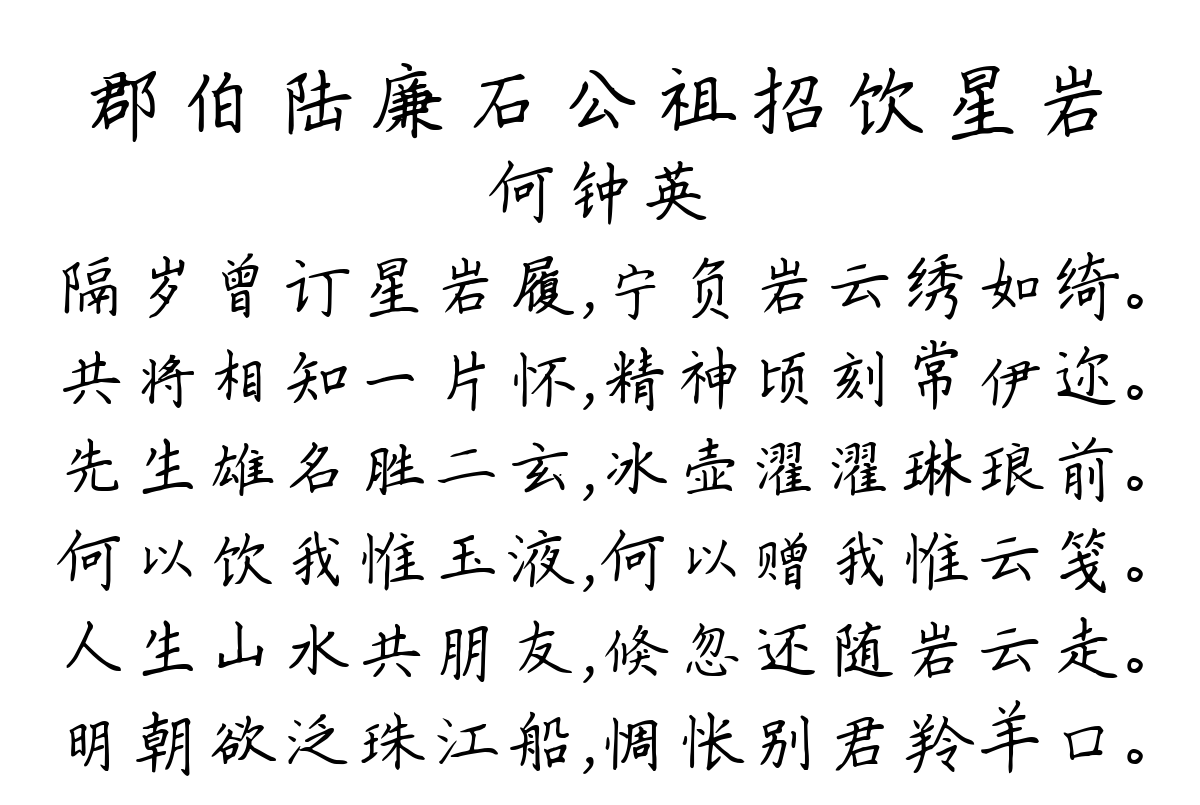 郡伯陆廉石公祖招饮星岩
何钟英
隔岁曾订星岩履,宁负岩云绣如绮。
共将相知一片怀,精神顷刻常伊迩。
先生雄名胜二玄,冰壶濯濯琳琅前。
何以饮我惟玉液,何以赠我惟云笺。
人生山水共朋友,倏忽还随岩云走。
明朝欲泛珠江船,惆怅别君羚羊口。